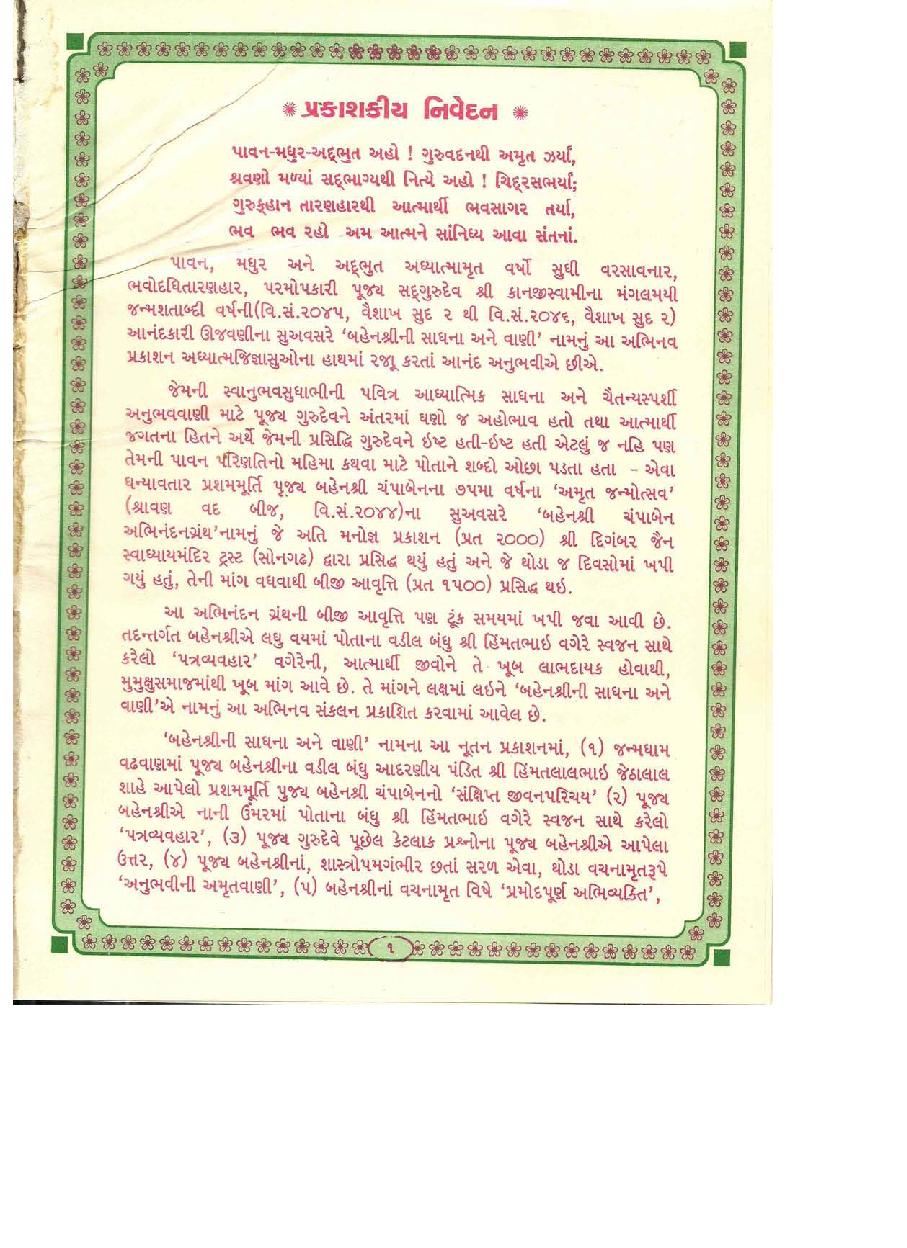 પ્રકાશકીય નિવેદન
પાવન-મધુર-અદ્ભુત અહો ! ગુરુવદનથી અમૃત ઝર્યાં,
શ્રવણો મળ્યાં સદ્ભાગ્યથી નિત્યે અહો ! ચિદ્રસભર્યાં;
ગુરુક્હાન તારણહારથી આત્માર્થી ભવસાગર તર્યા,
ભવ ભવ રહો અમ આત્મને સાંનિધ્ય આવા સંતનાં.
પાવન, મધુર અને અદ્ભુત અધ્યાત્મામૃત વર્ષો સુધી વરસાવનાર,
ભવોદધિતારણહાર, પરમોપકારી પૂજ્ય સદ્ગુરુદેવ શ્રી કાનજીસ્વામીના મંગલમયી
જન્મશતાબ્દી વર્ષની(વિ.સં.૨૦૪૫, વૈશાખ સુદ ૨ થી વિ.સં.૨૦૪૬, વૈશાખ સુદ ૨)
આનંદકારી ઊજવણીના સુઅવસરે ‘બહેનશ્રીની સાધના અને વાણી’ નામનું આ અભિનવ
પ્રકાશન અધ્યાત્મજિજ્ઞાસુઓના હાથમાં રજૂ કરતાં આનંદ અનુભવીએ છીએ.
જેમની સ્વાનુભવસુધાભીની પવિત્ર આધ્યાત્મિક સાધના અને ચૈતન્યસ્પર્શી
અનુભવવાણી માટે પૂજ્ય ગુરુદેવને અંતરમાં ઘણો જ અહોભાવ હતો તથા આત્માર્થી
જગતના હિતને અર્થે જેમની પ્રસિદ્ધિ ગુરુદેવને ઇષ્ટ હતી-ઇષ્ટ હતી એટલું જ નહિ પણ
તેમની પાવન પરિણતિનો મહિમા કથવા માટે પોતાને શબ્દો ઓછા પડતા હતા – એવા
ધન્યાવતાર પ્રશમમૂર્તિ પૂજ્ય બહેનશ્રી ચંપાબેનના ૭૫મા વર્ષના ‘અમૃત જન્મોત્સવ’
(શ્રાવણ વદ બીજ, વિ.સં.૨૦૪૪)ના સુઅવસરે ‘બહેનશ્રી ચંપાબેન
અભિનંદનગ્રંથ’નામનું જે અતિ મનોજ્ઞ પ્રકાશન (પ્રત ૨૦૦૦) શ્રી દિગંબર જૈન
સ્વાધ્યાયમંદિર ટ્રસ્ટ (સોનગઢ) દ્વારા પ્રસિદ્ધ થયું હતું અને જે થોડા જ દિવસોમાં ખપી
ગયું હતું, તેની માંગ વધવાથી બીજી આવૃત્તિ (પ્રત ૧૫૦૦) પ્રસિદ્ધ થઇ.
આ અભિનંદન ગ્રંથની બીજી આવૃત્તિ પણ ટૂંક સમયમાં ખપી જવા આવી છે.
તદન્તર્ગત બહેનશ્રીએ લઘુ વયમાં પોતાના વડીલ બંધુ શ્રી હિંમતભાઇ વગેરે સ્વજન સાથે
કરેલો ‘પત્રવ્યવહાર’ વગેરેની, આત્માર્થી જીવોને તે ખૂબ લાભદાયક હોવાથી,
મુમુક્ષુસમાજમાંથી ખૂબ માંગ આવે છે. તે માંગને લક્ષમાં લઇને ‘બહેનશ્રીની સાધના અને
વાણી’એ નામનું આ અભિનવ સંકલન પ્રકાશિત કરવામાં આવેલ છે.
‘બહેનશ્રીની સાધના અને વાણી’ નામના આ નૂતન પ્રકાશનમાં, (૧) જન્મધામ
વઢવાણમાં પૂજ્ય બહેનશ્રીના વડીલ બંધુ આદરણીય પંડિત શ્રી હિંમતલાલભાઇ જેઠાલાલ
શાહે આપેલો પ્રશમમૂર્તિ પુજ્ય બહેનશ્રી ચંપાબેનનો ‘સંક્ષિપ્ત જીવનપરિચય’ (૨) પૂજ્ય
બહેનશ્રીએ નાની ઉંમરમાં પોતાના બંધુ શ્રી હિંમતભાઈ વગેરે સ્વજન સાથે કરેલો
‘પત્રવ્યવહાર’, (૩) પૂજ્ય ગુરુદેવે પૂછેલ કેટલાક પ્રશ્નોના પૂજ્ય બહેનશ્રીએ આપેલા
ઉત્તર, (૪) પૂજ્ય બહેનશ્રીનાં, શાસ્ત્રોપમગંભીર છતાં સરળ એવા, થોડા વચનામૃતરૂપે
‘અનુભવીની અમૃતવાણી’, (૫) બહેનશ્રીનાં વચનામૃત વિષે ‘પ્રમોદપૂર્ણ અભિવ્યકિત’,
૧